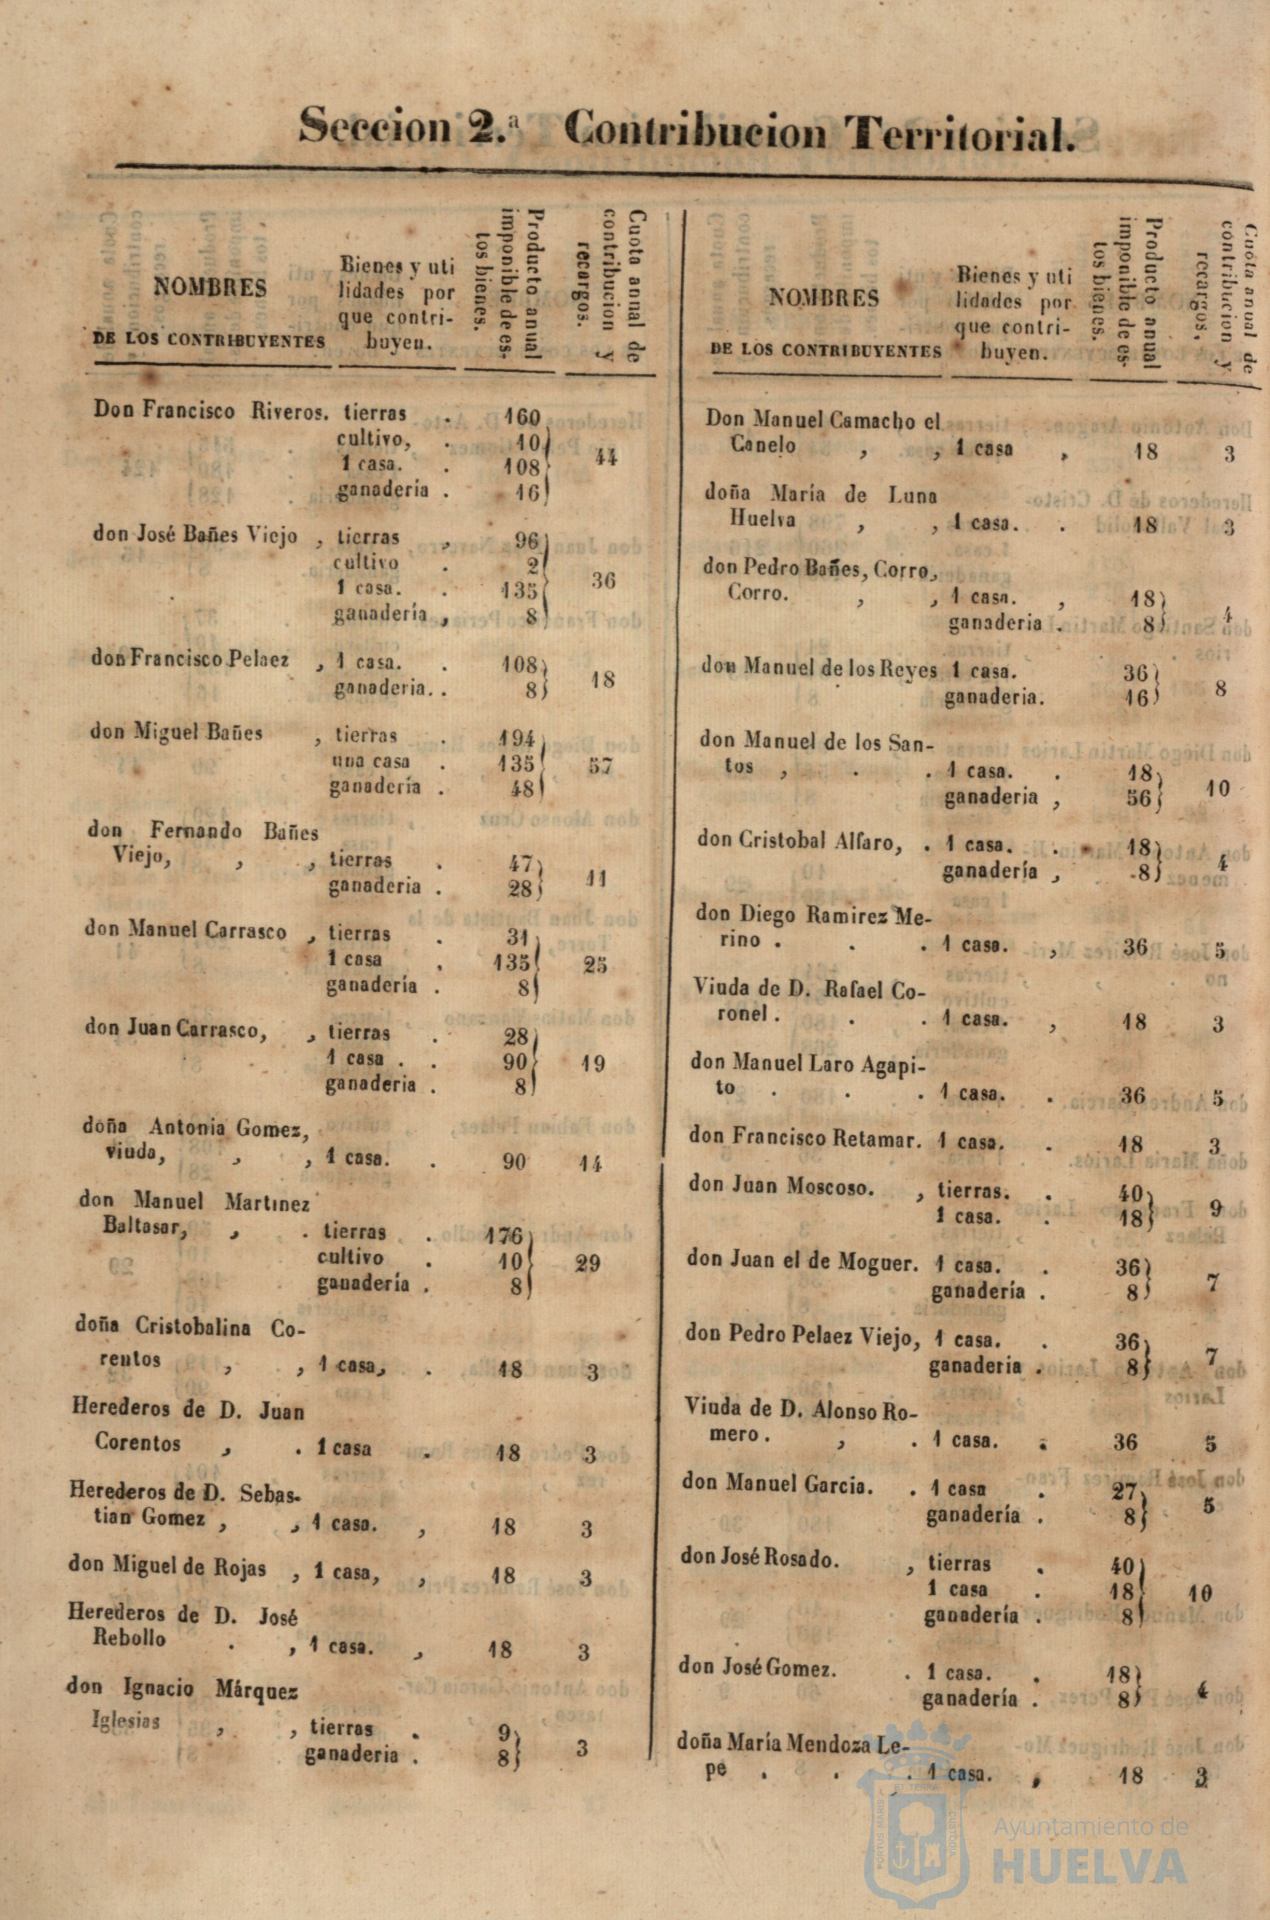 Seccion 2.ª Contribucion Territorial.
NOMBRES
DE LOS CONTRIBUYENTES
Bienes y uti
lidades por
que contri-
buyen.
Producto anual
imponible de es-
tos bienes.
Cuota annal de
contribucion y
recargos.
Don Francisco Riveros. tierras . 160
cultivo, . 10
1 casa. . 108 } 44
ganadería . 16
don José Bañes Viejo , tierras , 96
cultivo . 2
1 casa. . 135 } 36
ganadería , 8
don Francisco Pelaez , 1 casa. . 108 } 18
ganaderia. . 8
don Miguel Bañes , tierras . 194
una casa . 135 } 57
ganadería . 48
don Fernando Bañes
Viejo, , , tierras . 47 } 11
ganaderia . 28
don Manuel Carrasco , tierras . 31
1 casa , 135 } 25
ganadería . 8
don Juan Carrasco, , tierras . 28
1 casa . . 90 } 19
ganaderia . 8
doña Antonia Gomez,
viuda, , , 1 casa. . 90 14
don Manuel Martinez
Baltasar, , . tierras . 176
cultivo . 10 } 29
ganadería . 8
doña Cristobalina Co-
rentos , , 1 casa, . 18 3
Herederos de D. Juan
Corentos , . 1 casa . 18 3
Herederos de D. Sebas-
tian Gomez , , 1 casa. , 18 3
don Miguel de Rojas , 1 casa, , 18 3
Herederos de D. José
Rebollo . , 1 casa. , 18 3
don Ignacio Márquez
Iglesias , , tierras . 9 } 3
ganaderia . 8
NOMBRES
DE LOS CONTRIBUYENTES
Bienes y uti
lidades por
que contri-
buyen.
Producto anual
imponible de es-
tos bienes.
Cuota anual de
contribucion y
recargos,
Don Manuel Camacho el
Canelo , , 1 casa , 18 3
doña María de Luna
Huelva , , 1 casa. . 18 3
don Pedro Bañes, Corro,
Corro. , , 1 casa. , 18 } 4
ganaderia . 8
don Manuel de los Reyes 1 casa. 36 } 8
ganaderia. 16
don Manuel de los San-
tos , . . 1 casa. . 18 } 10
ganaderia , 56
don Cristobal Alfaro, . 1 casa. . 18 } 4
ganadería , 8
don Diego Ramirez Me-
rino . . . 1 casa. , 36 5
Viuda de D. Rafael Co-
ronel . . . 1 casa. , 18 3
don Manuel Laro Agapi-
to . . . 1 casa. . 36 5
don Francisco Retamar. 1 casa. . 18 3
don Juan Moscoso. , tierras. . 40 } 9
1 casa. . 18
don Juan el de Moguer. 1 casa. . 36 } 7
ganadería . 8
don Pedro Pelaez Viejo, 1 casa. . 36 } 7
ganaderia . 8
Viuda de D. Alonso Ro-
mero . , . 1 casa. . 36 5
don Manuel Garcia. . 1 casa . 27 } 5
ganadería . 8
don José Rosado. , tierras . 40
1 casa . 18 } 10
ganadería . 8
don José Gomez. . 1 casa. . 18 } 4
ganadería . 8
doña María Mendoza Le-
pe . . . 1 casa. , 18 3
PORTUS MARIS ET TERRAE CUSTODIA
Ayuntamiento de
HUELVA